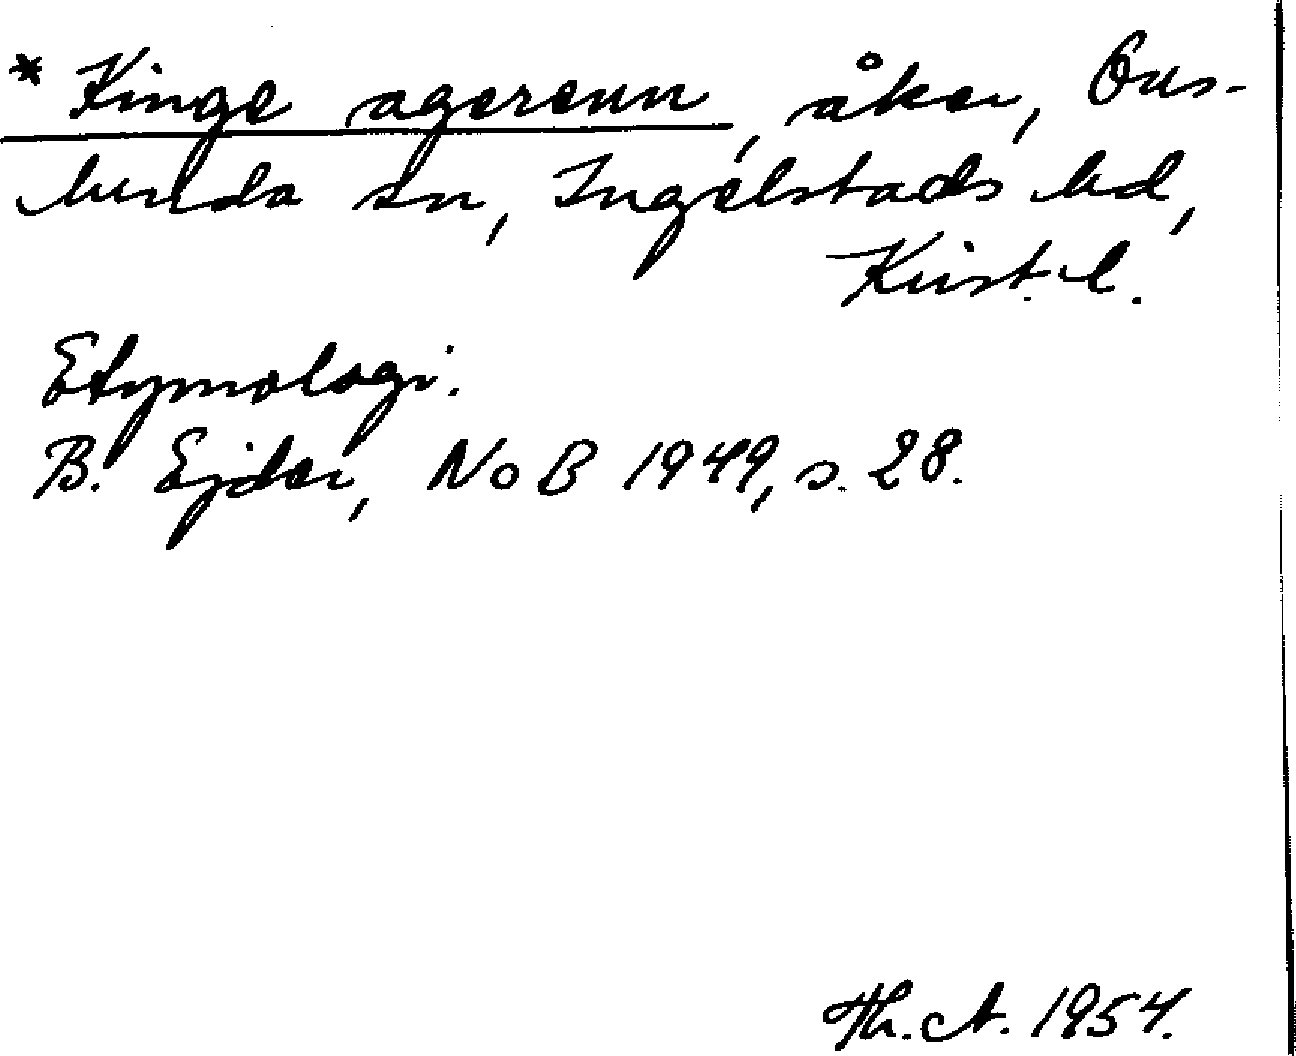 * Kinge agerenn, åker, Ons-
lunda sn, Ingelstads hd,
Krist. l.
Etymologi.
B. Ejder, NoB 1949, s. 28.
Th. A. 1954.